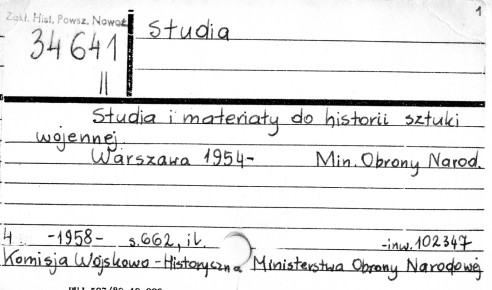 1
Zakł. Hist. Powsz. Nowoż.
34641
II
Studia
Studia i materiały do historii sztuki
wojennej
Warszawa 1954- Min. Obrony Narod.
4 -1958- s.662, il. -inw.102347
Komisja Wojskowo-Historyczna Ministerstwa Obrony Narodowej